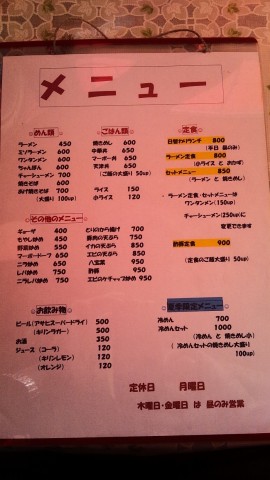 メニュー
めん類
ラーメン 450
ミソラーメン 600
ワンタンメン 600
ちゃんぽん 600
チャーシューメン 700
焼きそば 600
あげ焼きそば 700
(大盛り 100up)
ごはん類
焼きめし 600
中華丼 650
マーボー丼 650
天津丼 650
(ご飯の大盛り 50up)
ライス 150
小ライス 120
定食
日替わりランチ 800
(平日 昼のみ)
ラーメン定食 800
(小ライス と おかず)
セットメニュー 850
(ラーメン と 焼きめし)
ラーメン定食・セットメニューは
ワンタンメン(150up)
チャーシューメン(250up)に
変更できます
酢豚定食 900
(定食のご飯大盛り 50up)
その他のメニュー
ギョーザ 400
もやし炒め 450
野菜炒め 550
マーボードーフ 650
ニラ炒め 650
レバ炒め 750
ニラレバ炒め 750
とりのから揚げ 700
豚肉の天ぷら 750
イカの天ぷら 850
エビの天ぷら 950
八宝菜 950
酢豚 950
エビのケチャップ炒め 950
お飲み物
ビール(アサヒスーパードライ) 500
(キリンラガー) 500
お酒 350
ジュース (コーラ) 120
(キリンレモン) 120
(オレンジ) 120
夏季限定メニュー
冷めん 700
冷めんセット 1000
(冷めん と 焼きめし小)
(冷めんセットの焼きめし大盛り
100up)
定休日 月曜日
木曜日・金曜日 は 昼のみ営業